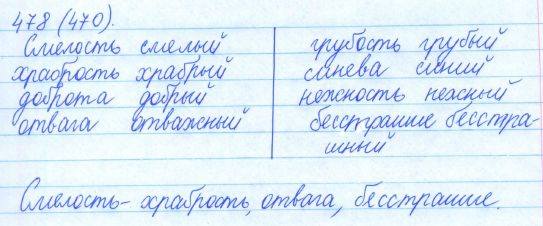 478 (470).
Смелость смелый
храбрость храбрый
доброта добрый
отвага отважный
грубость грубый
синева синий
нежность нежный
бесстрашие бесстра-
шный
Смелость- храбрость, отвага, бесстрашие.